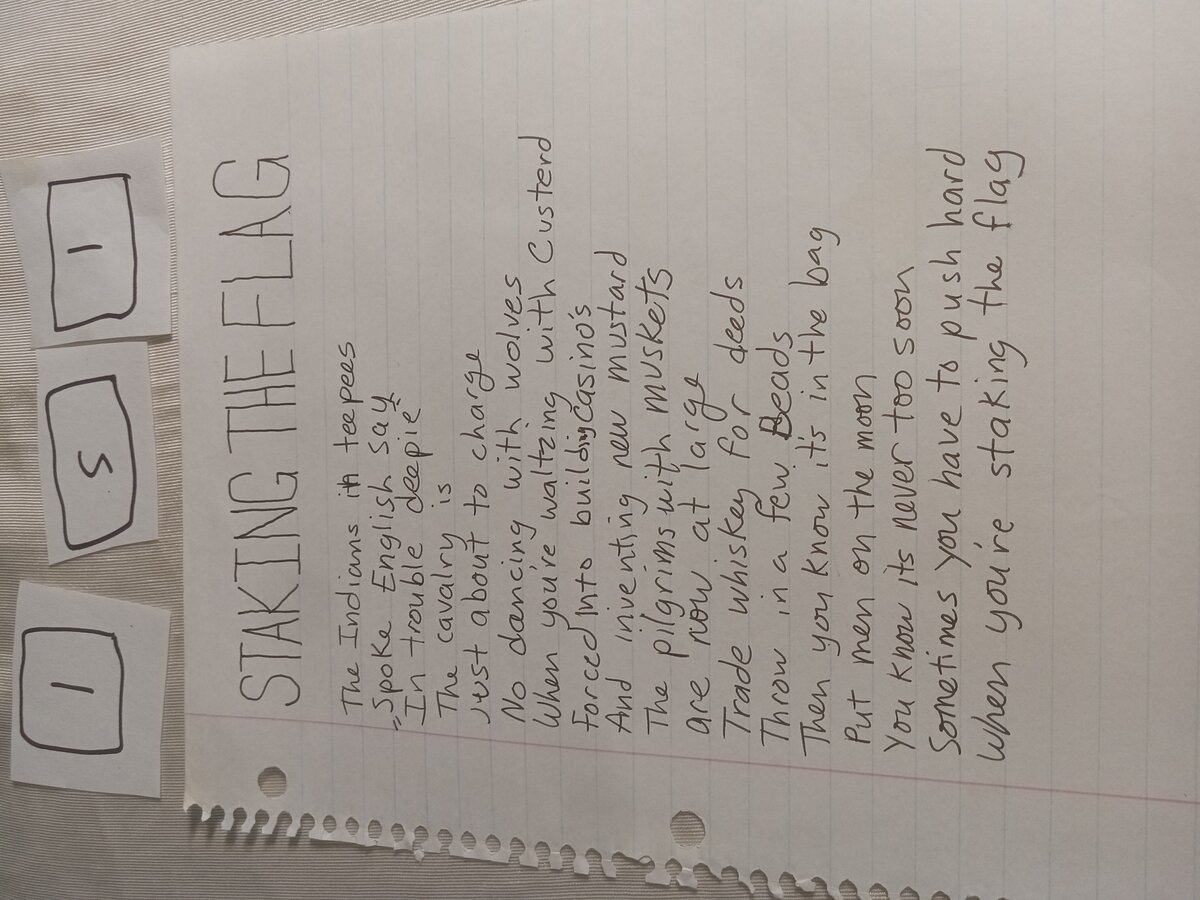 1 5 1
STAKING THE FLAG
The Indians in teepees
"Spoke English say
In trouble deepie"
The cavalry is
just about to charge
No dancing with wolves
When you're waltzing with Custerd
forced into building casino's
And inventing new mustard
The pilgrims with muskets
are now at large
Trade whiskey for deeds
Throw in a few Beads
Then you know it's in the bag
Put men on the moon
You know its never too soon
Sometimes you have to push hard
When you're staking the flag